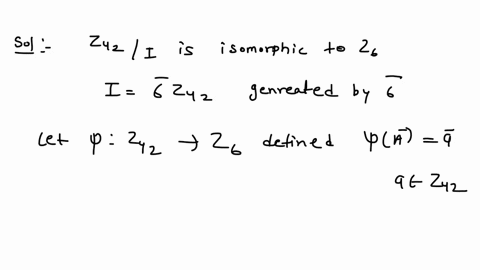 Sol:- Z₄₂/I is isomorphic to Z₆
I = 6̅ Z₄₂ genreated by 6̅
Let φ: Z₄₂ → Z₆ defined φ(A̅) = a̅
a ∈ Z₄₂